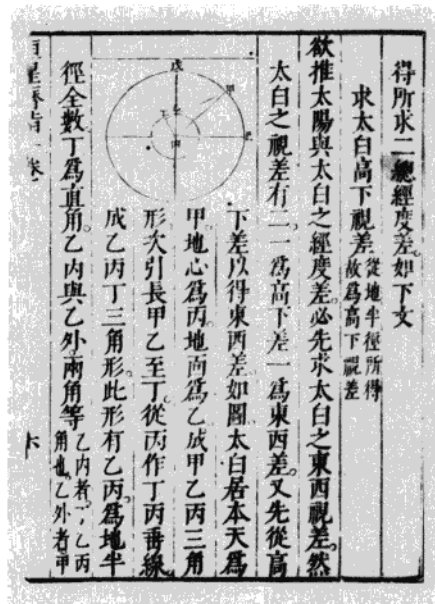 得所求二總經度差如下文
求太白高下視差從地半徑所得故爲高下視差
欲推太陽與太白之經度差必先求太白之東西視差然
太白之視差有二一爲高下差一爲東西差又先從高
下差以得東西差如圖太白居本天爲
甲地心爲丙地面爲乙成甲乙丙三角
形次引長甲乙至丁從丙作丁丙垂線
成乙丙丁三角形此形有乙丙爲地半
徑全數丁爲直角乙內與乙外兩角等乙内者丁乙丙角也乙外者甲
戊
甲
乙
丁
丙
卷一
六